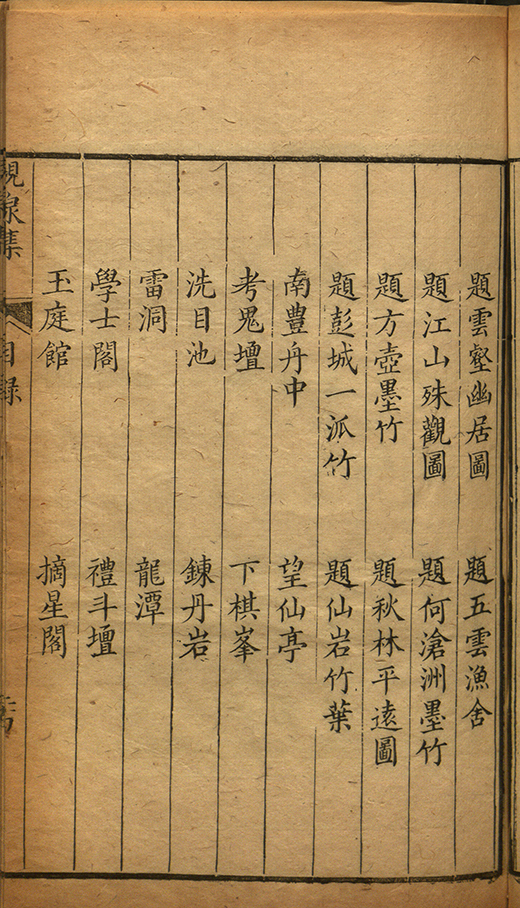 題雲壑幽居圖　題五雲漁舍
題江山殊觀圖　題何滄洲墨竹
題方壺墨竹　題秋林平遠圖
題彭城一派竹　題仙岩竹葉
南豐舟中　望仙亭
考鬼壇　下棋峯
洗目池　鍊丹岩
雷洞　龍潭
學士閣　禮斗壇
玉庭館　摘星閣
峴泉集　目録